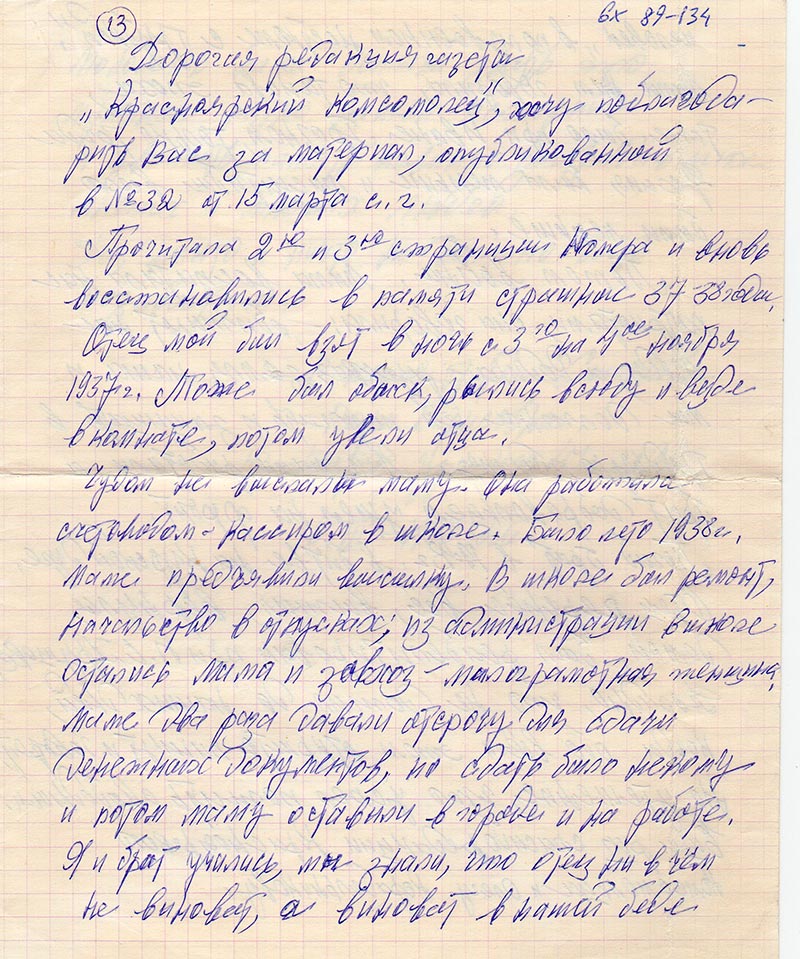 13
вх 89-134
Дорогая редакция газеты
„Красноярский комсомолец", хочу поблагода-
рить Вас за материал, опубликованный
в №32 от 15 марта с.г.
Прочитала 2ю и 3ю страницы Номера и вновь
восстановились в памяти страшные 37 38 годы.
Отец мой был взят в ночь с 3го на 4ое ноября
1937г. Тоже был обыск, рылись всюду и везде
в комнате, потом увели отца.
Чудом не выслали маму. Она работала
счетоводом-кассиром в школе. Было лето 1938г.
Маме предъявили высылку. В школе был ремонт,
начальство в отпусках; из администрации в школе
остались мама и завхоз - малограмотная женщина.
Маме два раза давали отсрочу для сдачи
денежных документов, но сдать было некому
и потом маму оставили в городе и на работе.
Я и брат учились, мы знали, что отец ни в чём
не виноват, а виноват в нашей беде